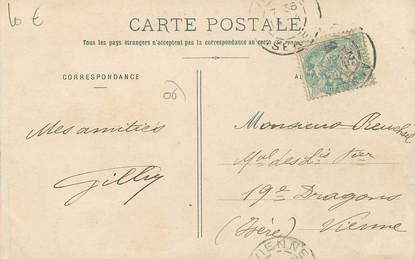 10 €
CARTE POSTALE
Tous les pays étrangers n'acceptent pas la correspondance au verso
CORRESPONDANCE
86
Mes amitiés
Gilly
Monsieur
Mal des
19e Dragons
(Isère) Vienne
VIENNE